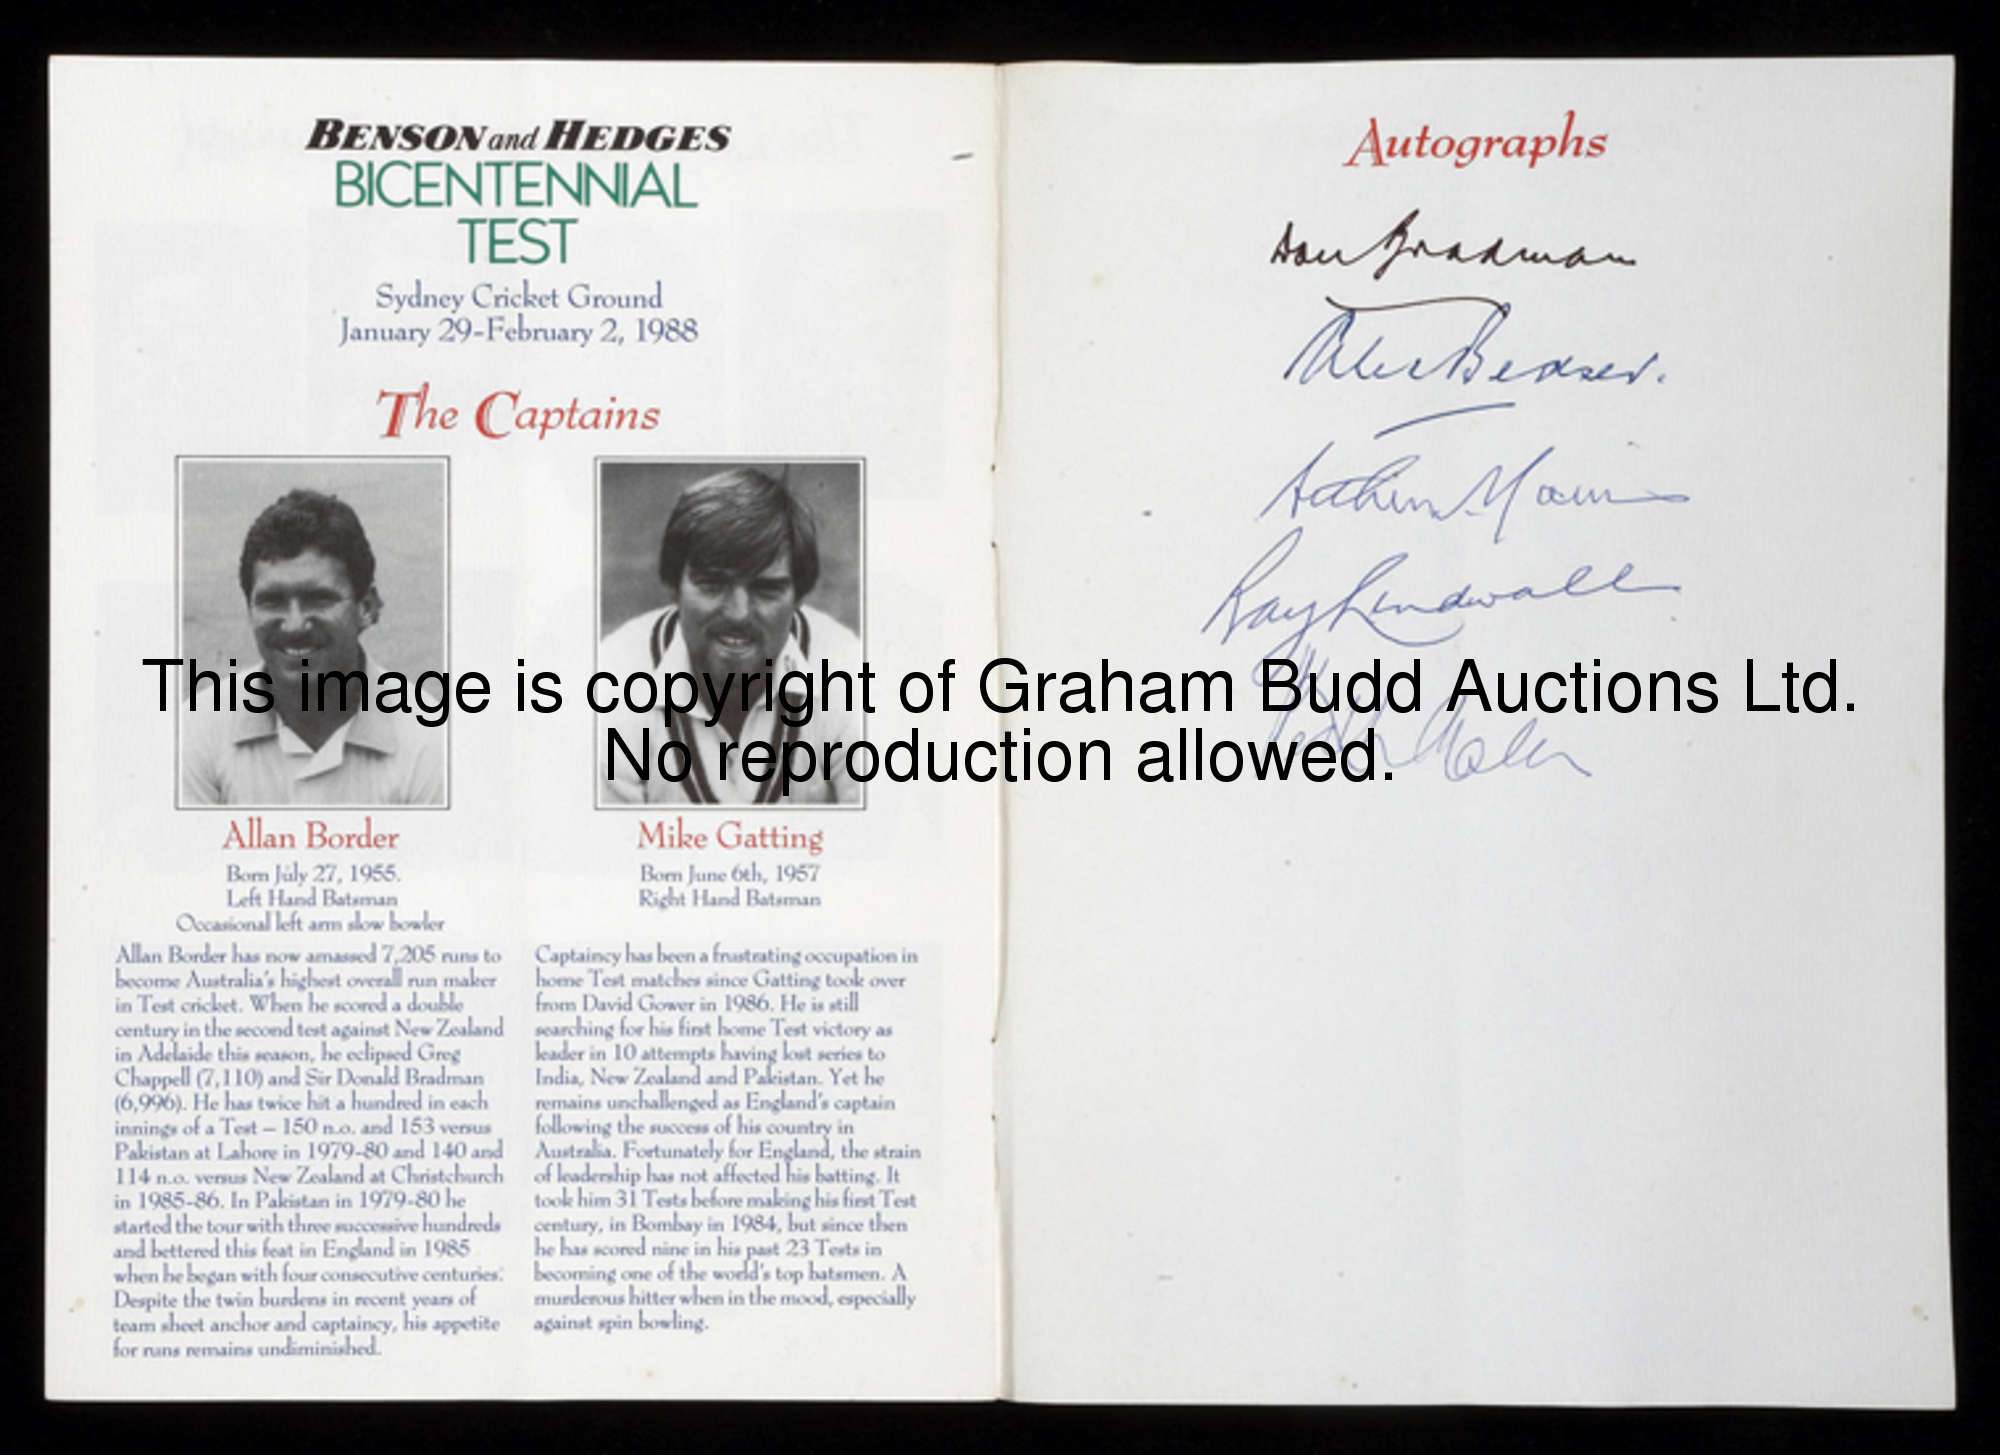 BENSON and HEDGES
BICENTENNIAL
TEST
Sydney Cricket Ground
January 29-February 2, 1988
The Captains
Allan Border
Born July 27, 1955.
Left Hand Batsman
Occasional left arm slow bowler
Allan Border has now amassed 7,205 runs to
become Australia's highest overall run maker
in Test cricket. When he scored a double
century in the second test against New Zealand
in Adelaide this season, he eclipsed Greg
Chappell (7,110) and Sir Donald Bradman
(6,996). He has twice hit a hundred in each
innings of a Test – 150 n.o. and 153 versus
Pakistan at Lahore in 1979-80 and 140 and
114 n.o. versus New Zealand at Christchurch
in 1985-86. In Pakistan in 1979-80 he
started the tour with three successive hundreds
and bettered this feat in England in 1985
when he began with four consecutive centuries.
Despite the twin burdens in recent years of
team sheet anchor and captaincy, his appetite
for runs remains undiminished.
Mike Gatting
Born June 6th, 1957
Right Hand Batsman
Captaincy has been a frustrating occupation in
home Test matches since Gatting took over
from David Gower in 1986. He is still
searching for his first home Test victory as
leader in 10 attempts having lost series to
India, New Zealand and Pakistan. Yet he
remains unchallenged as England's captain
following the success of his country in
Australia. Fortunately for England, the strain
of leadership has not affected his batting. It
took him 31 Tests before making his first Test
century, in Bombay in 1984, but since then
he has scored nine in his past 23 Tests in
becoming one of the world's top batsmen. A
murderous hitter when in the mood, especially
against spin bowling.
Autographs
Don Bradman
Alec Bedser.
Arthur Morris
Ray Lindwall
This image is copyright of Graham Budd Auctions Ltd.
No reproduction allowed.